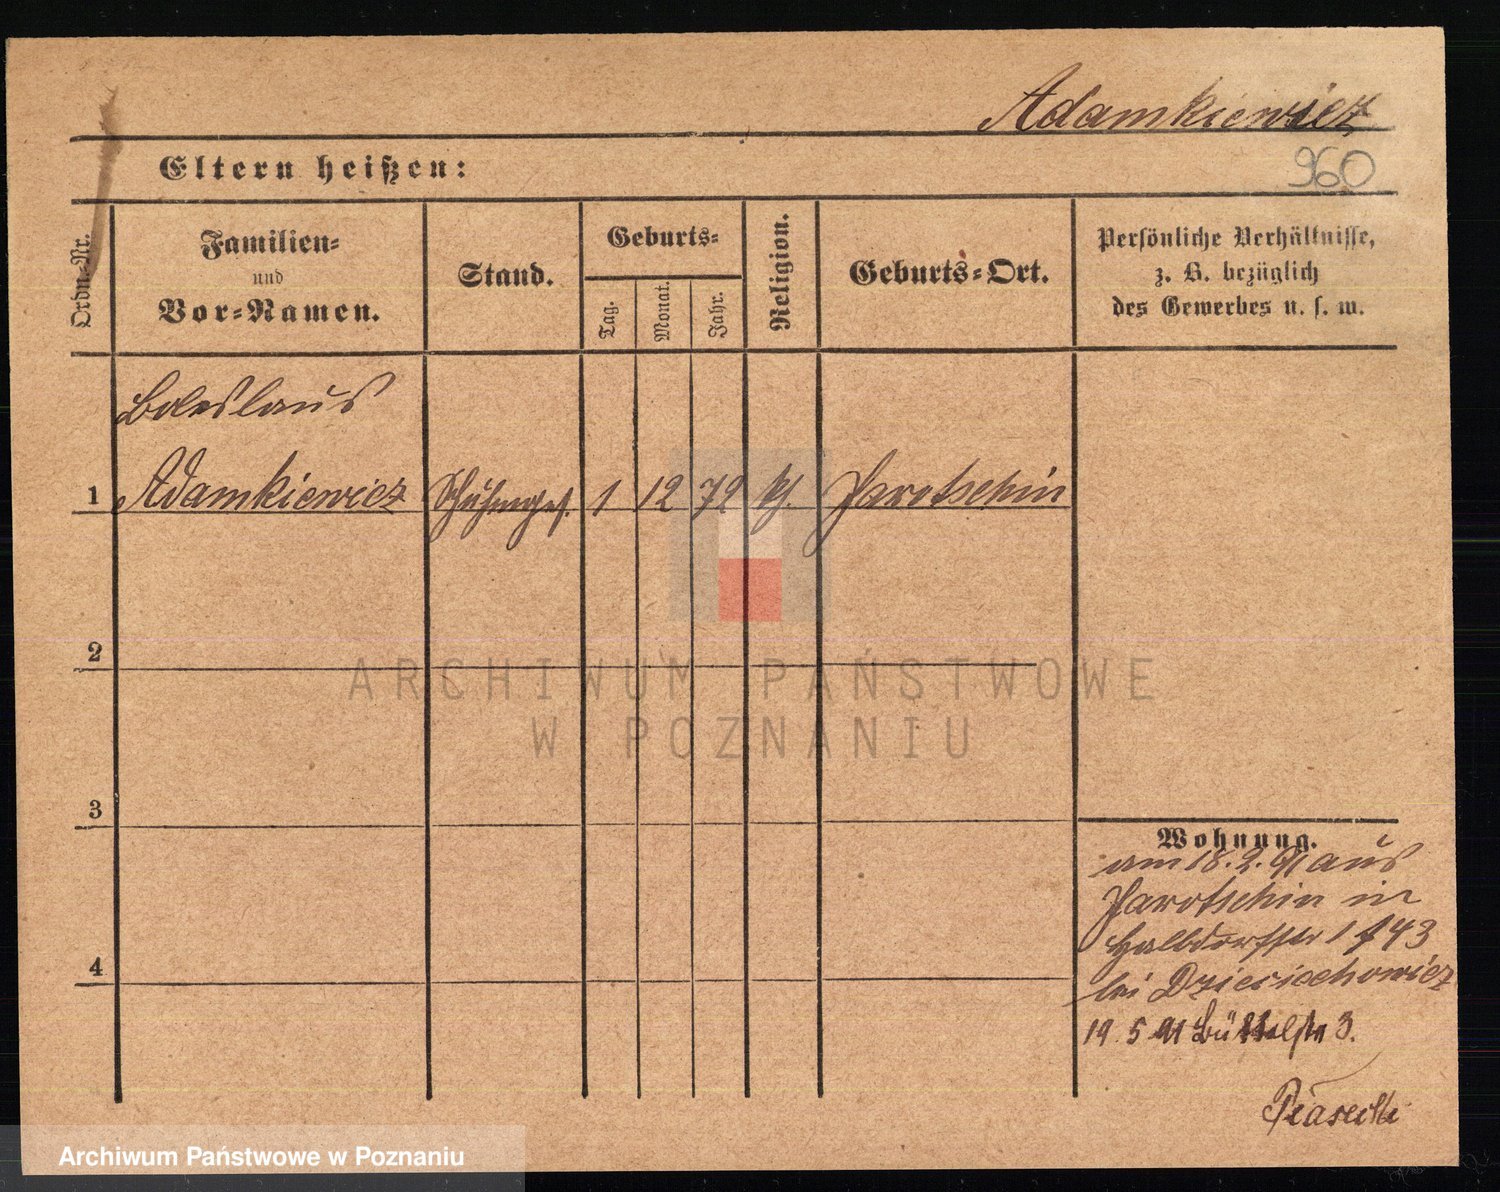 Adamkiewicz
Eltern heißen:
960
Ordn-Nr.
Familien-
und
Vor-Namen.
Stand.
Geburts-
Tag.
Monat.
Jahr.
Religion.
Geburts-Ort.
Persönliche Verhältnisse,
z. B. bezüglich
des Gewerbes u. s. w.
Boleslaus
1 Adamkiewicz 1 12 72 k. Jarotschin
2
ARCHIWUM PAŃSTWOWE
W POZNANIU
3
Wohnung.
am 18.2.91 aus
Jarotschin in
Halbdorfstr
bei
19.5.91 Büttelstr 3.
4
Piasecki
Archiwum Państwowe w Poznaniu